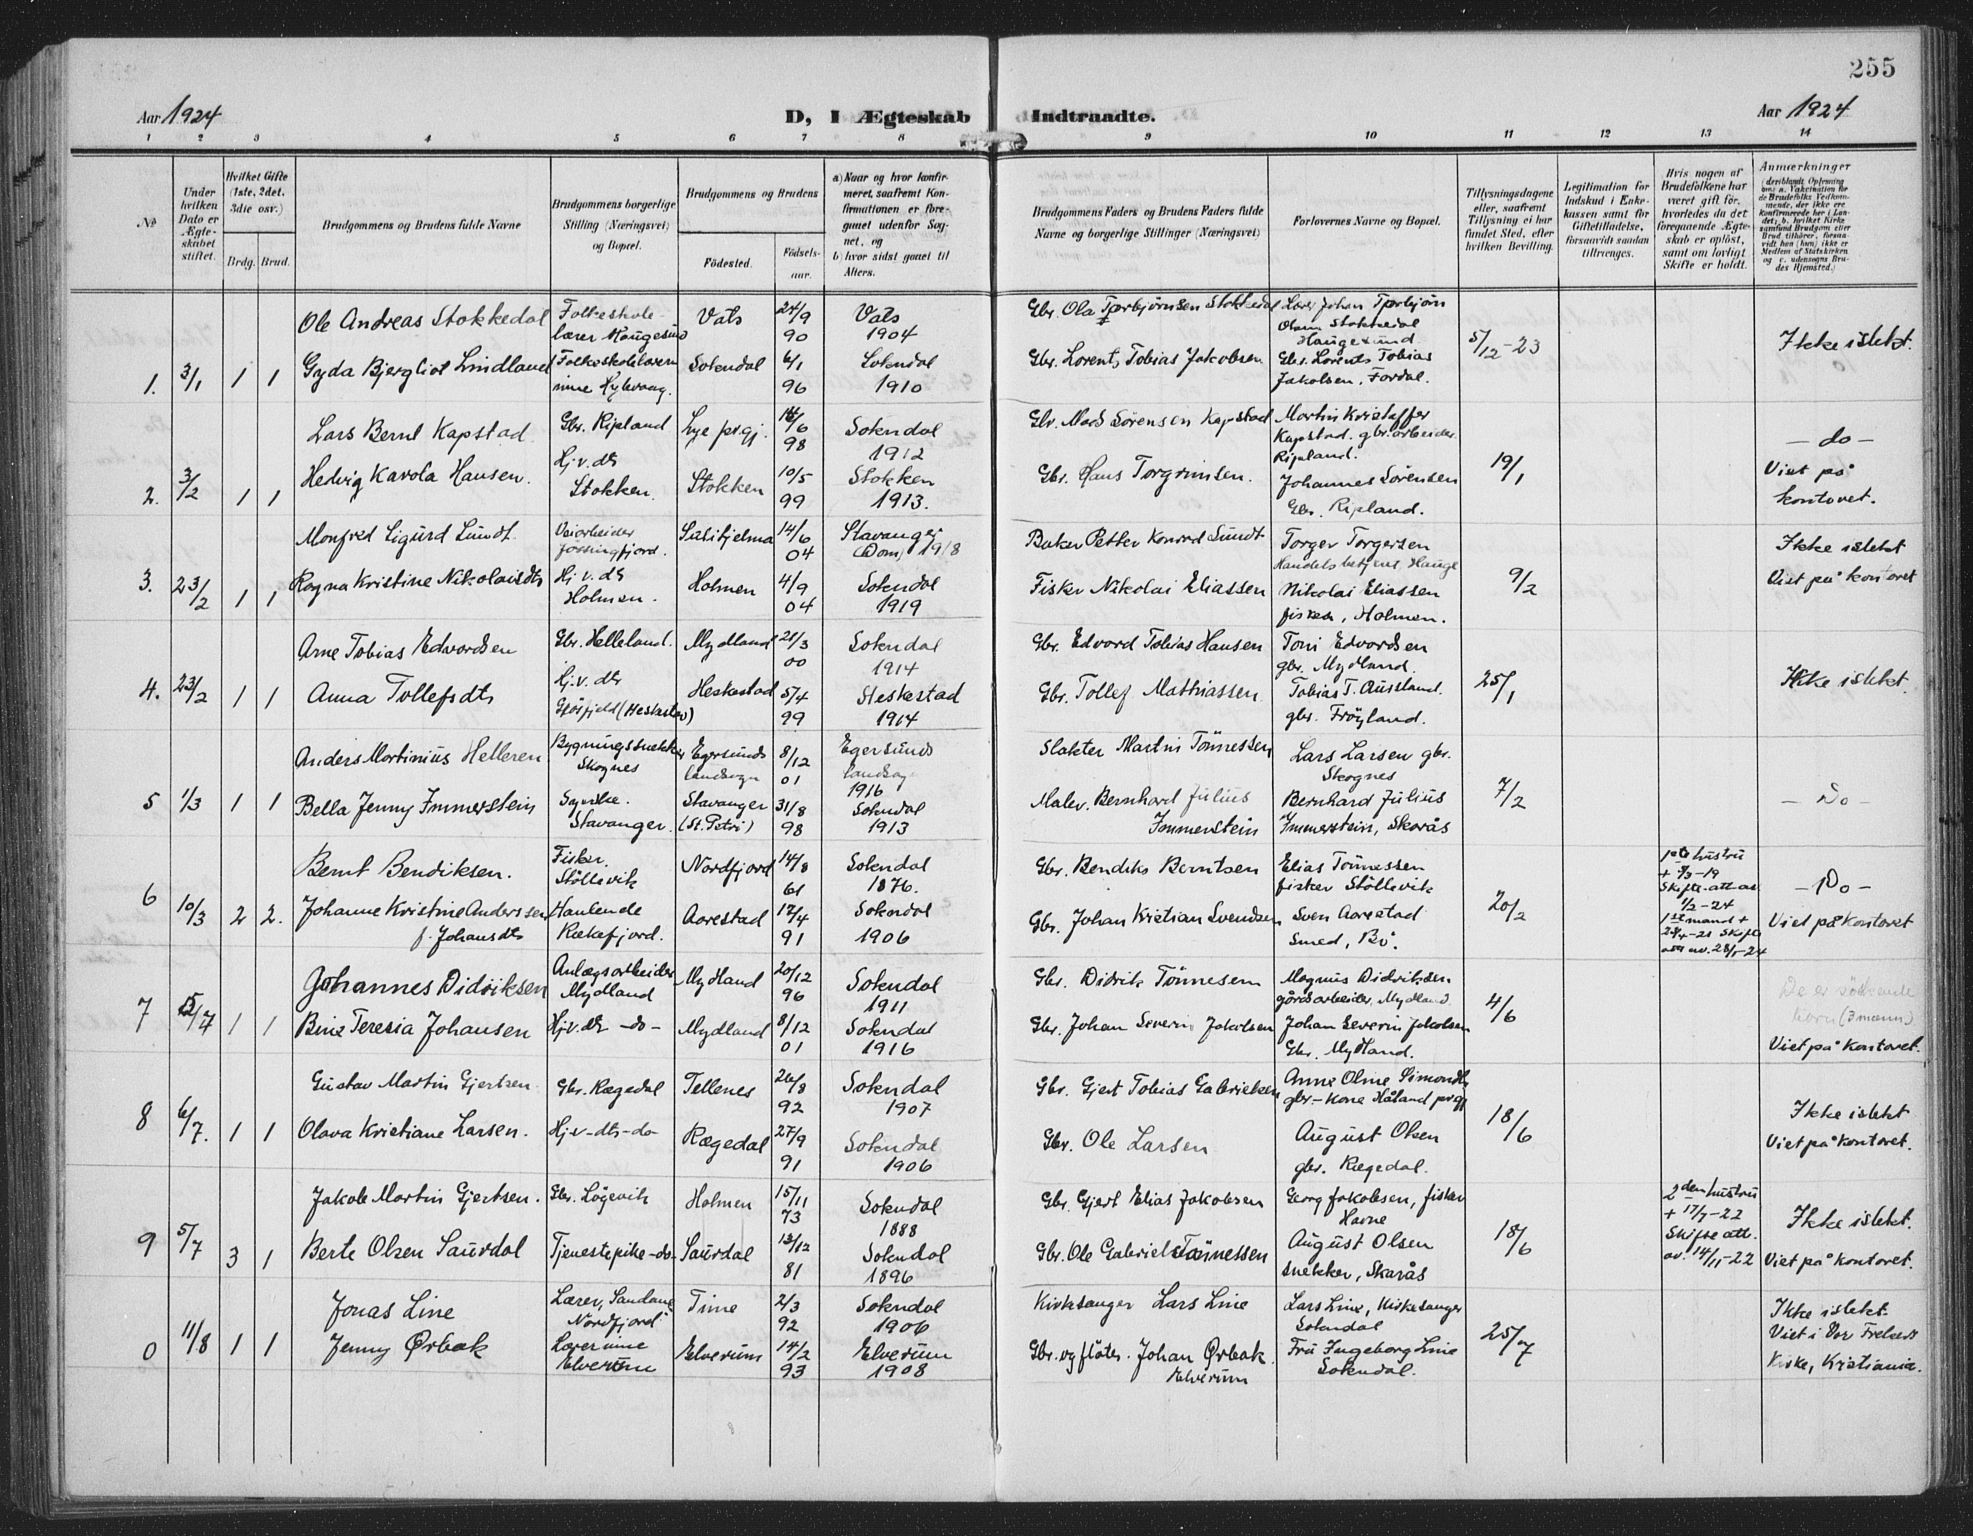 255
Aar 1924
D, I Ægteskab Indtraadte.
Aar 1924
1 2 3 4 5 6 7 8 9 10 11 12 13 14
№
Under hvilken Dato er Ægteskabet stiftet.
Hvilket Gifte (1ste, 2det, 3die osv.)
Brdg. Brud.
Brudgommens og Brudens fulde Navne
Brudgommens borgerlige Stilling (Næringsvei) og Bopæl.
Brudgommens og Brudens
Fødested. Fødselsaar.
a) Naar og hvor konfirmeret, saafremt Konfirmationen er foregaaet udenfor Sognet, og
b) hvor sidst gaaet til Alters.
Brudgommens Faders og Brudens Faders fulde Navne og borgerlige Stillinger (Næringsvei)
Forlovernes Navne og Bopæl.
Tillysningsdagene eller, saafremt Tillysning ei har fundet Sted, efter hvilken Bevilling.
Legitimation for Indskud i Enkekassen samt for Giftetilladelse, forsaavidt saadan tiltrænges.
Hvis nogen af Brudefolkene har været gift før, hvorledes da det foregaaende Ægteskab er opløst, samt om lovligt Skifte er holdt.
Anmærkninger
1. 3/1 1 1
Ole Andreas Stokkedal
Folkeskolelærer Haugesund
Vats 24/9 90
Vats 1904
Gbr. Ola Torbjørnsen Stokkedal
Lærer Johan Torbjörn Olsen Stokkedal Haugesund
5/12-23
Ikke islekt.
Gyda Bjergliot Lindland
Folkeskolelærerinne
Sokndal 6/1 96
Sokndal 1910
Gbr. Lorents Tobias Jakobsen
Gbr. Lorents Tobias Jakobsen,
2. 3/2 1 1
Lars Bernt Kapstad
Gbr. Ripland
Lye pr.gj. 98
Sokndal 1912
Gbr. Mads Sørensen Kapstad
Martin Kristoffer Kapstad. gbr. arbeider Ripland.
19/1
- do -
Hedvig Karola Hansen.
Hj. v. dtr Stokken.
Stokken 10/5 99
Stokken 1913.
Gbr. Hans Torgrimsen.
Johannes Sörensen Gbr. Ripland.
Viet på kontoret.
3. 23/2 1 1
Monfred Sigurd Lundt
Veiarbeider Jössingfjord.
Sulitjelma 14/6 04
Stavanger (Dom) 1918
Baker Petter Konrad Lundt
Torger Torgersen Handelsbetjent, Hauge
9/2
Ikke islekt
Ragna Kristine Nikolaisdtr
Hj. v. dtr Holmen.
Holmen 4/9 04
Sokndal 1919
Fisker Nikolai Eliassen
Nikolai Eliassen fisker, Holmen.
Viet på kontoret
4. 23/2 1 1
Arne Tobias Edvardsen
Gbr. Helleland.
Mydland 21/3 00
Sokndal 1914
Gbr. Edvard Tobias Hansen
Toni Edvardsen gbr. Mydland.
25/1
Ikke islekt.
Anna Tollefsdtr
Hj. v. dtr (Heskestad)
Heskestad 5/4 99
Heskestad 1914
Gbr. Tollef Mathiassen
Tobias T. Ausland. gbr. Fröyland.
5 1/3 1 1
Anders Martinius Helleren
Bygningssnekker Skognes
Egersunds landsogn 8/12 01
Egersunds landsogn 1916
Slakter Martin Tönnessen
Lars Larsen gbr. Skognes
7/2
- Do -
Bella Jenny Immerstein
Syerske. Stavanger.
Stavanger (St. Petri) 31/8 98
Sokndal 1913
Maler. Bernhard Julius Immerstein
Bernhard Julius Immerstein, Skarås
6 10/3 2 2.
Bernt Bendiksen.
Fisker. Stöllsvik
Nordfjord 14/8 61
Sokndal 1876.
Gbr. Bendiks Berntsen
Elias Tönnessen fisker Stöllsvik
20/2
1ste hustru + 7/3-19 Skifteatt. av. 1/2-24
- Do -
Johanne Kristine Anderssen f. Johansdtr
Hanlende Rekefjord.
Aarestad 17/4 91
Sokndal 1906
Gbr. Johan Kristian Svendsen
Sven Aarestad Smed, Bö.
1ste mand + 28/4-21 Skifteatt av. 28/1-24
Viet på Kontoret
7 5/7 1 1
Johannes Didriksen
Anlægsarbeider Mydland
Mydland 20/12 96
Sokndal 1911
Gbr. Didrik Tönnesen
Magnus Didriksen gårdsarbeider, Mydland.
4/6
De er söskendebarn (3 menn.)
Bine Teresia Johansen
Hj. v. dtr -do-
Mydland 8/12 01
Sokndal 1916
Gbr. Johan Severin Jakobsen
Johan Severin Jakobsen Gbr. Mydland.
Viet på kontoret.
8 6/7. 1 1
Gustav Martin Gjertsen
Gbr. Rægedal
Tellenes 26/8 92
Sokndal 1907
Gbr. Gjert Tobias Gabrielsen
Anne Oline Simondtr gbr.-kone Håland pr.gj
18/6
Ikke islekt
Olava Kristiane Larsen.
Hj-v-dtr-do-
Rægedal 27/9 91
Sokndal 1906
Gbr. Ole Larsen
August Olsen gbr. Rægedal.
Viet på kontoret.
9 5/7 3 1
Jakob Martin Gjertsen.
Gbr. Lögevik
Holmen 15/11 73
Sokndal 1888
Gbr. Gjert Elias Jakobsen
Georg Jakobsen, fisker Havne
18/6
2den hustru + 17/7-22 Skifteatt. av. 14/11-22
Ikke islekt.
Berte Olsen Saurdal
Tjenestepike -do-
Saurdal 13/12 81
Sokndal 1896
Gbr. Ole Gabriel Tönnessen
August Olsen snekker, Skarås
Viet på kontoret.
0 11/8 1 1
Jonas Line
Lærer, Sandane Nordfjord
Time 2/3 92
Sokndal 1906
Kirkesanger Lars Line
Lars Line, Kirkesanger Sokndal
25/7
Ikke islekt.
Jenny Ørbak
Lærerinne Elverum
Elverum 14/2 93
Elverum 1908
Gbr. og fløter. Johan Ørbak. Elverum
Fru Ingeborg Line Sokndal.
Viet i Vor Frelsers Kirke, Kristiania.